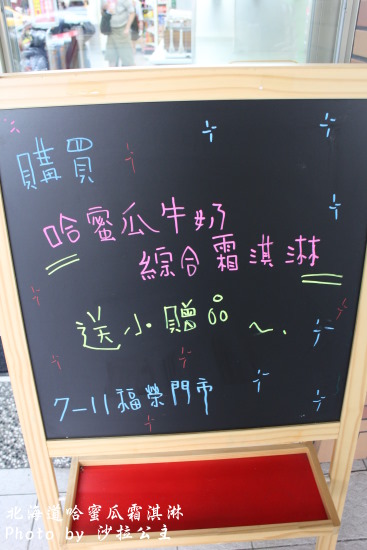 購買
哈蜜瓜牛奶
綜合霜淇淋
送小贈品~.
7-11福榮門市
北海道哈蜜瓜霜淇淋
Photo by 沙拉公主